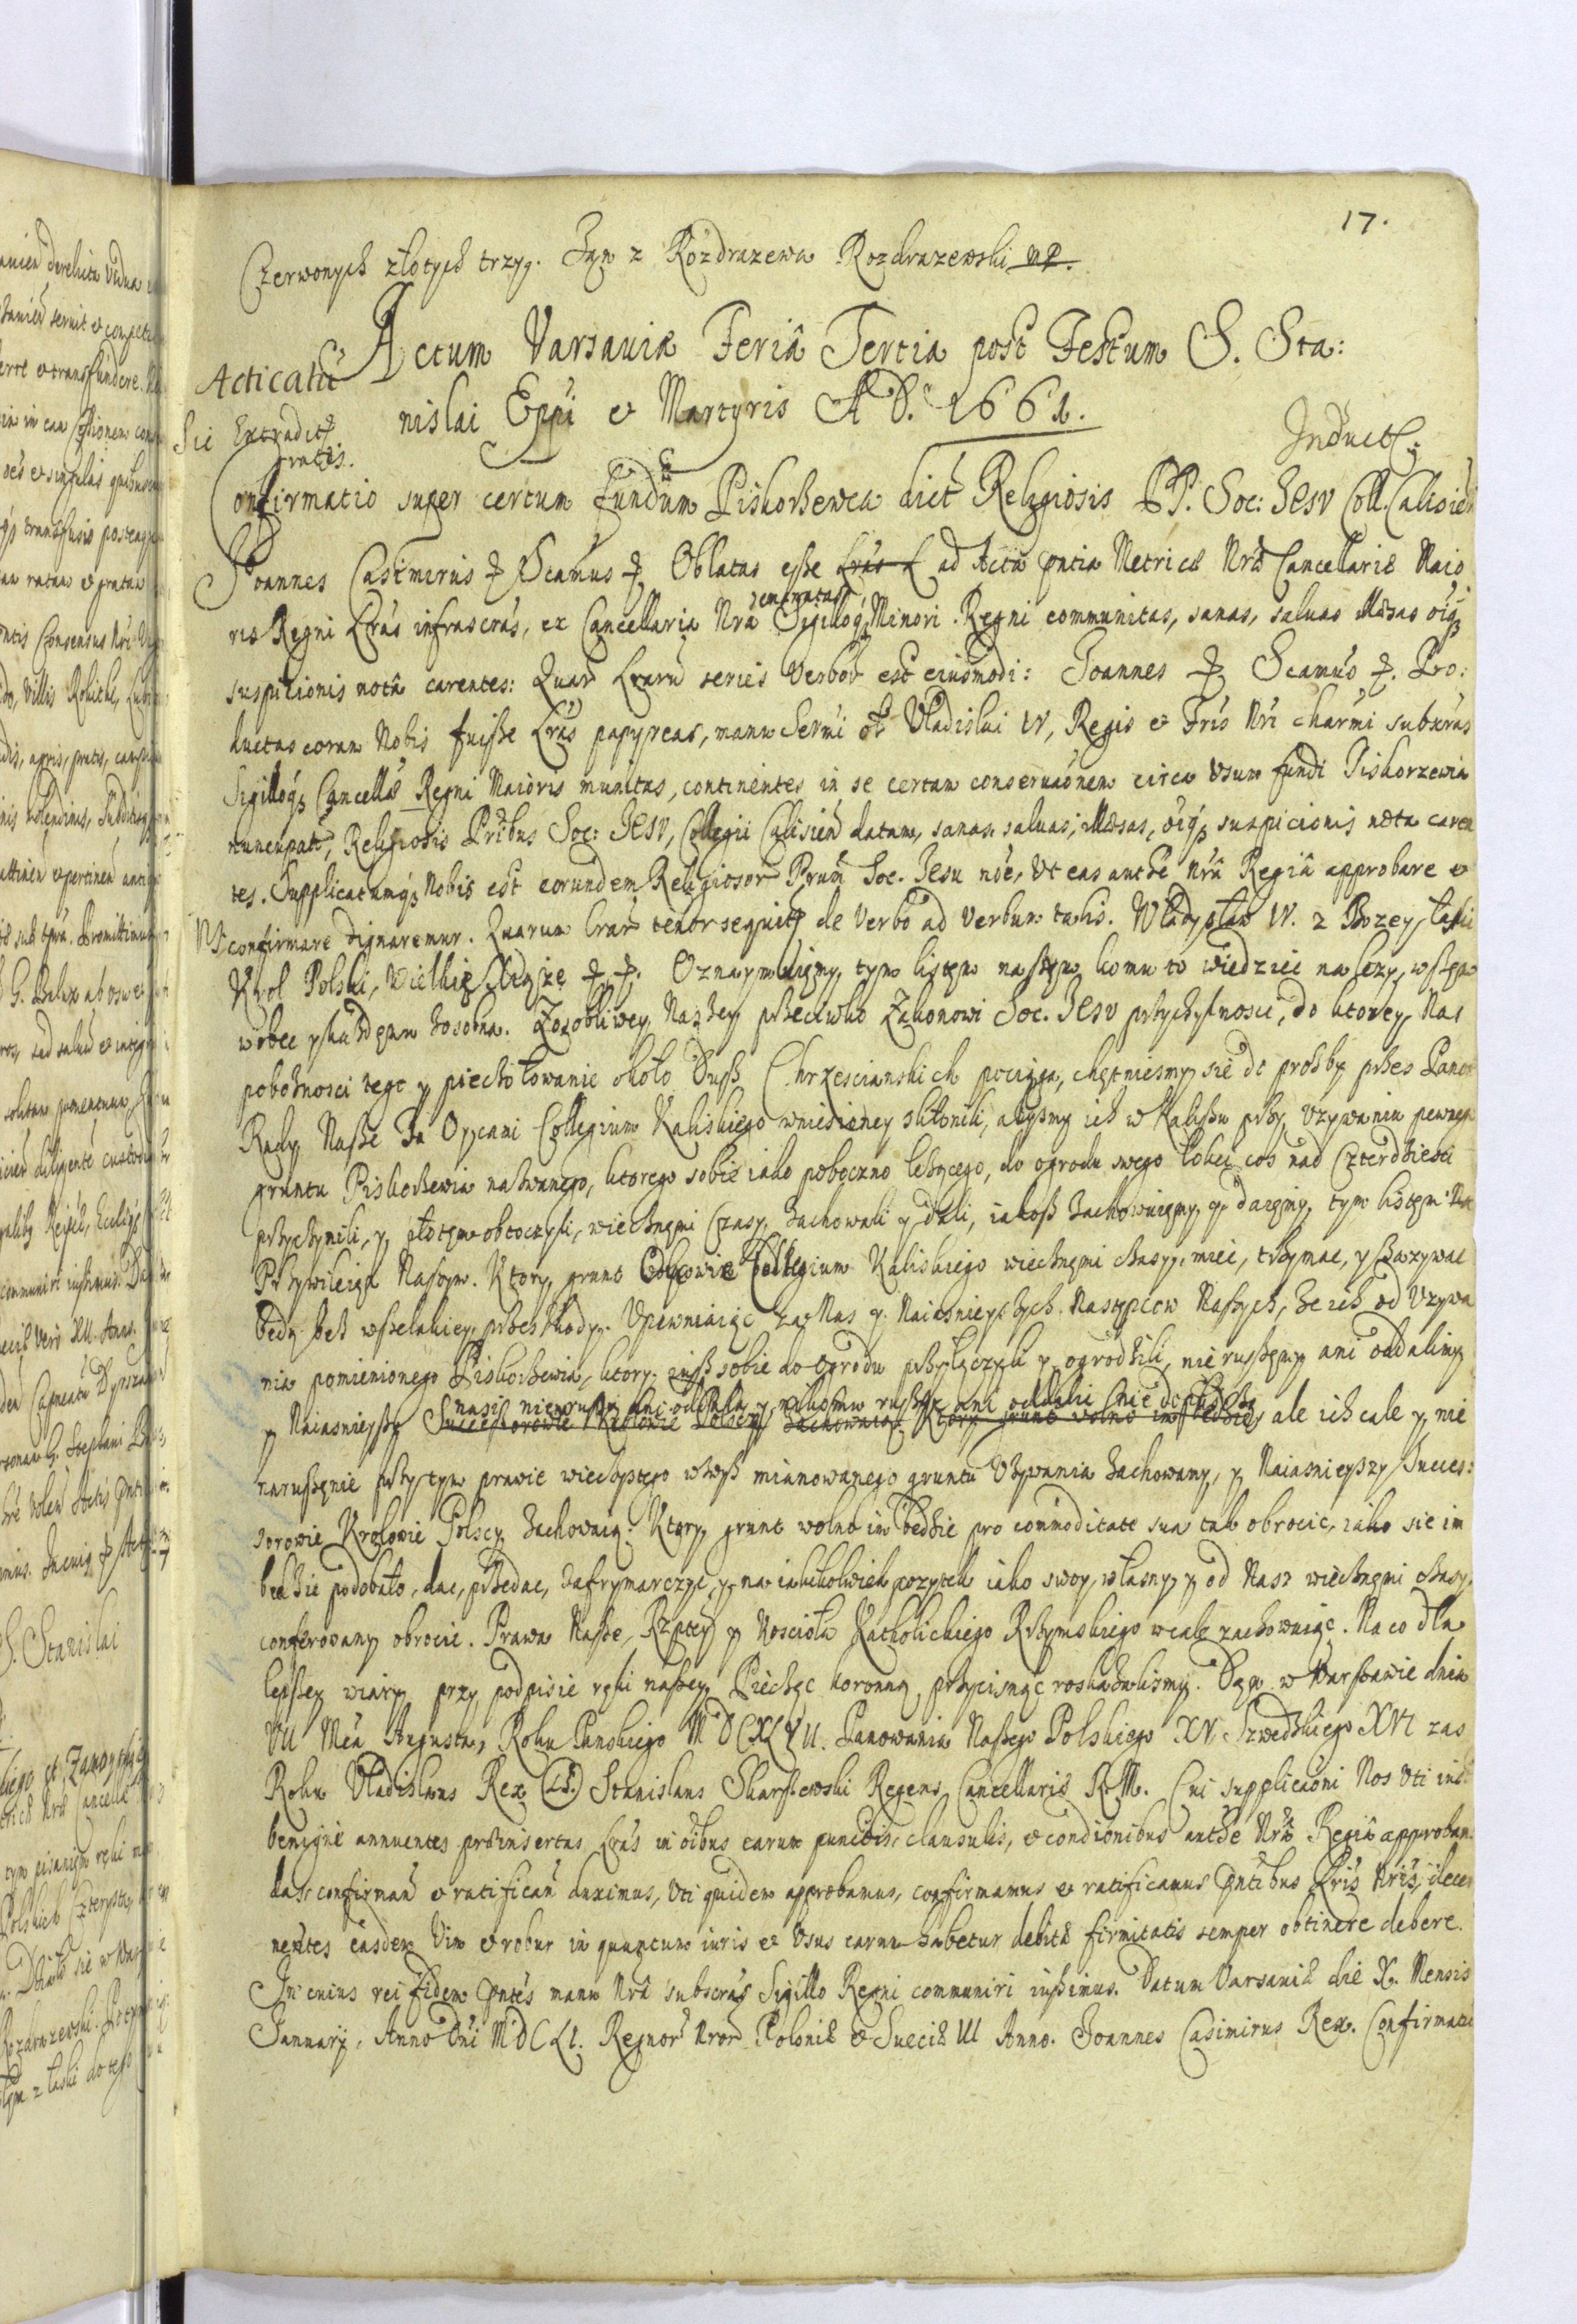 17.
Czerwonych złotych trzy. Jan z Rozdrazewa Rozdrazewski mp.
Actum Varsaviæ Feriâ Tertia post Festum S. Sta:
Acticatũ
nislai Eppi et Martyris A D. 1661.
Extradit
Induct:
gratis.
Confirmatio super certum fundum Piskorzewea dict Religiosis PP. Soc: Jesv Coll. Calisien
Joannes Casimirus & Scamus & Oblatas esse ad Acta pntia Metrices Nræ Cancellariæ Maio
ris Regni Lras infrascras, ex Cancellaria Nra Sigilloq Minori Regni communitas, sanas, saluas illæsas oiq
suspitionis notâ carentes: Quar Lrarũ series Verbor est eiusmodi: Joannes & Scamus &. Pro:
ductas coram Nobis fuisse Lras papyreas, manu Sermi ol Vladislai IV, Regis et Fris Nri charmi subscras
Sigilloq Cancellæ Regni Maioris munitas, continentes in se certam conseruaõnem circa Vsum fundi Piskorzewia
nuncupat, Religiosis Pribus Soc: Jesv, Collegii Calisien datam, sanas saluas, illæsas, oiq suspicionis nota caren
tes. Supplicatumq Nobis est eorundem Religiosor Prum Soc. Jesu noe, Vt eas authe nra Regiâ approbare et
confirmare dignaremur. Quarum Lrar tenor sequit de Verbo ad Verbum talis. Władysław IV. z Bozey łaski
Krol Polski, Wielkie Xiąże & &. Oznaymuiemy tym listem naszym komu to wiedziec nalezy, wszem
wobec y kazdemu zosobna. Zosobliwey Naszey przeciwko Zakonowi Soc. Jesv przychylnosci, do ktorey Nas
poboznosci tego y piechołowanie około Dusz Chrzescianskich pociąga, chętniesmy sie do prozby przez Panow
Rady Nasze za Oycami Collegium Kaliskiego wniesioney skłonili, abysmy ich w Kaliszu przy vzywaniu pewnego
gruntu Piskorzewia nazwanego, ktorego sobie iako poboczno lezącego, do ogrodu swego łokci cos nad Czterdziesci
przyczynili, y płotem obtoczyli, wiecznemi Czasy zachowali y dali, iakosz zachowuiemy y daiemy tym listem
Przywileiem Naszym. Ktory grunt Oycowie Collegium Kaliskiego wiecznemi czasy, miec, trzymac, y vzywac
będą bez wszelakiey przeszkody. Vpewniaiąc za Nas y Naiasnieyszych Następcow Naszych, ze ich od Vzywa
nia pomienionego Piskorzewia, ktory iusz sobie do Ogrodu przyłączyli y ogrodzili, nie ruszemy ani oddalimy
y Naiasnieyszy ale ich cale y nie
naruszenie przy tym prawie wieczystego wzwysz mianowanego gruntu Vzywania zachowamy, y Naiasnieyszy Succes:
sorowie Krolowie Polscy zachowaią: Ktory grunt wolno im bedzie pro commoditate sua tak obrocic, iako sie im
bedzie podobało, dac, przedac, zafrymarczyc, y na iakikolwiek pozytek iako swoy własny y od Nasz wiecznemi czasy
conferowany obrocic. Prawa Nasze, Rzptey y Koscioła Katholickiego Rzymskiego wcale zachowuiąc. Na co dla
lepszey wiary przy podpisie ręki naszey Piecząc koronną przycisnąc roskazalismy. Dan w Warszawie dnia
VII Mca Augusta, Roku Panskiego MDCXLVII. Panowania Naszego Polskiego XV Szwedzkiego XVI zas
Roku Vladislaus Rex (LS) Stanislaus Skarszewski Regens Cancellariæ R. M. Cui supplicaõni Nos Vti
benigne annuentes præinsertas Lras in oibus earum punctis, clausulis, et condionibus authe Nra Regiâ approban
das, confirmañ et ratificañ duximus, Vti quidem approbamus, confirmamus et ratificamus Pntibus Lris Nris, decer
nentes easdem Vim et robur in quantum iuris et Vsus earum habetur debitæ firmitatis semper obtinere debere.
In cuius rei fidem Pntes manu Nra subscras Sigillo Regni communiri iussimus. Datum Varsaviæ die X. Mensis
Januarij, Anno Dni MDCLI. Regnor Nror Poloniæ et Sueciæ III Anno. Joannes Casimirus Rex. Confirmatio